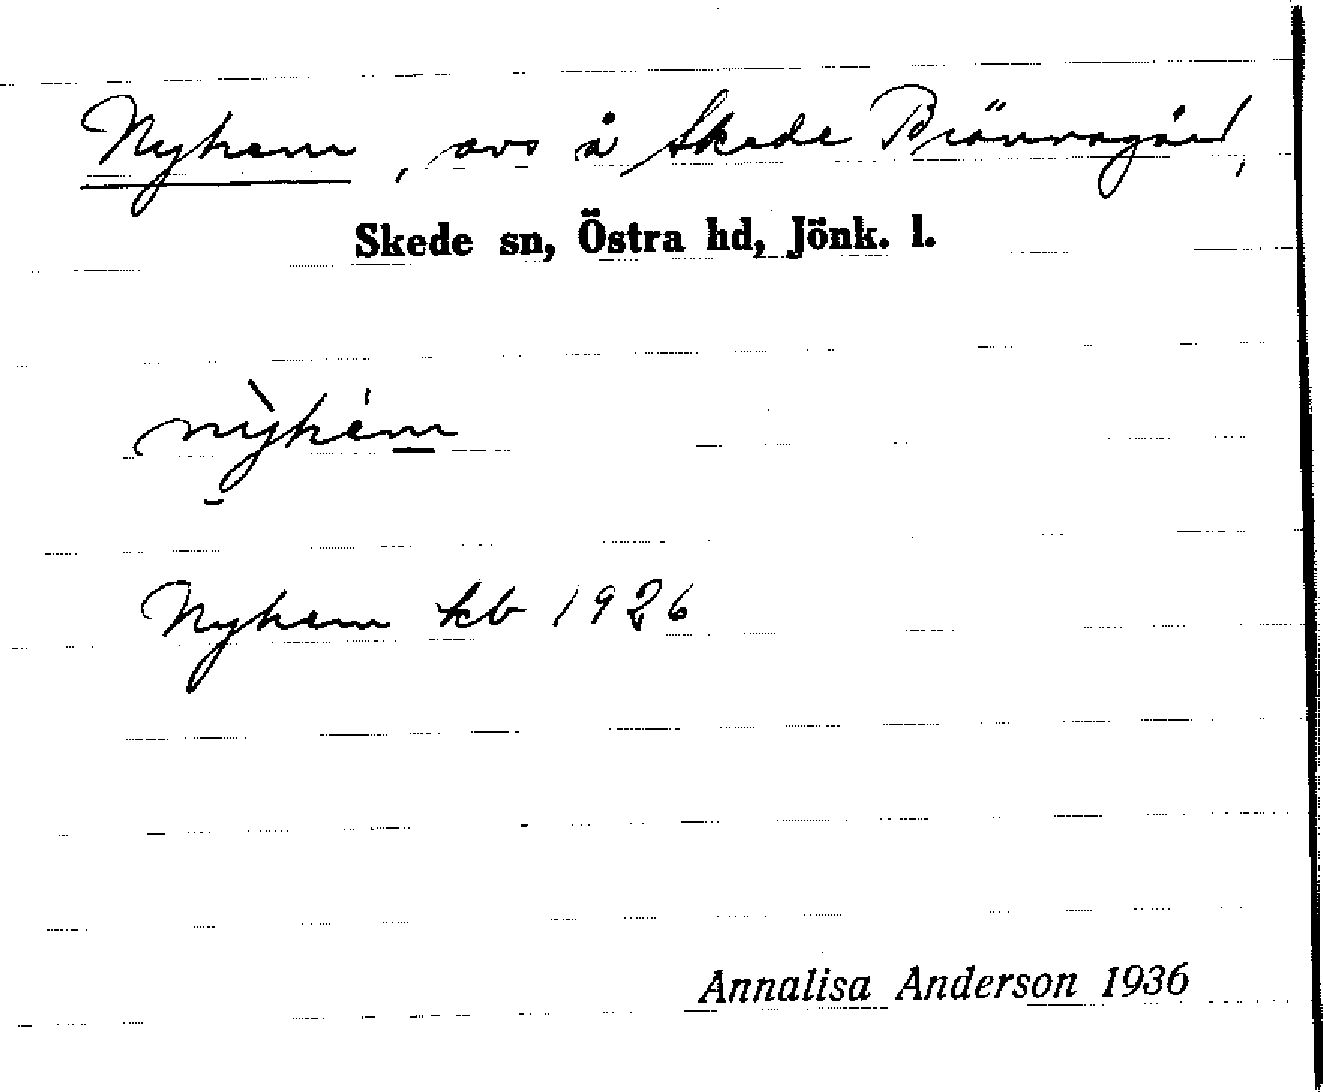 Nyhem, avs å Skede Brännagård,
Skede sn, Östra hd, Jönk. l.
nỳhém
Nyhem kb 1926
Annalisa Anderson 1936